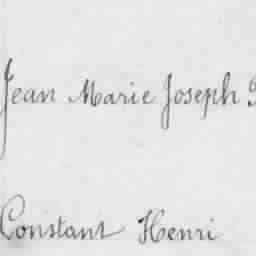 Jean Marie Joseph
Constant Henri